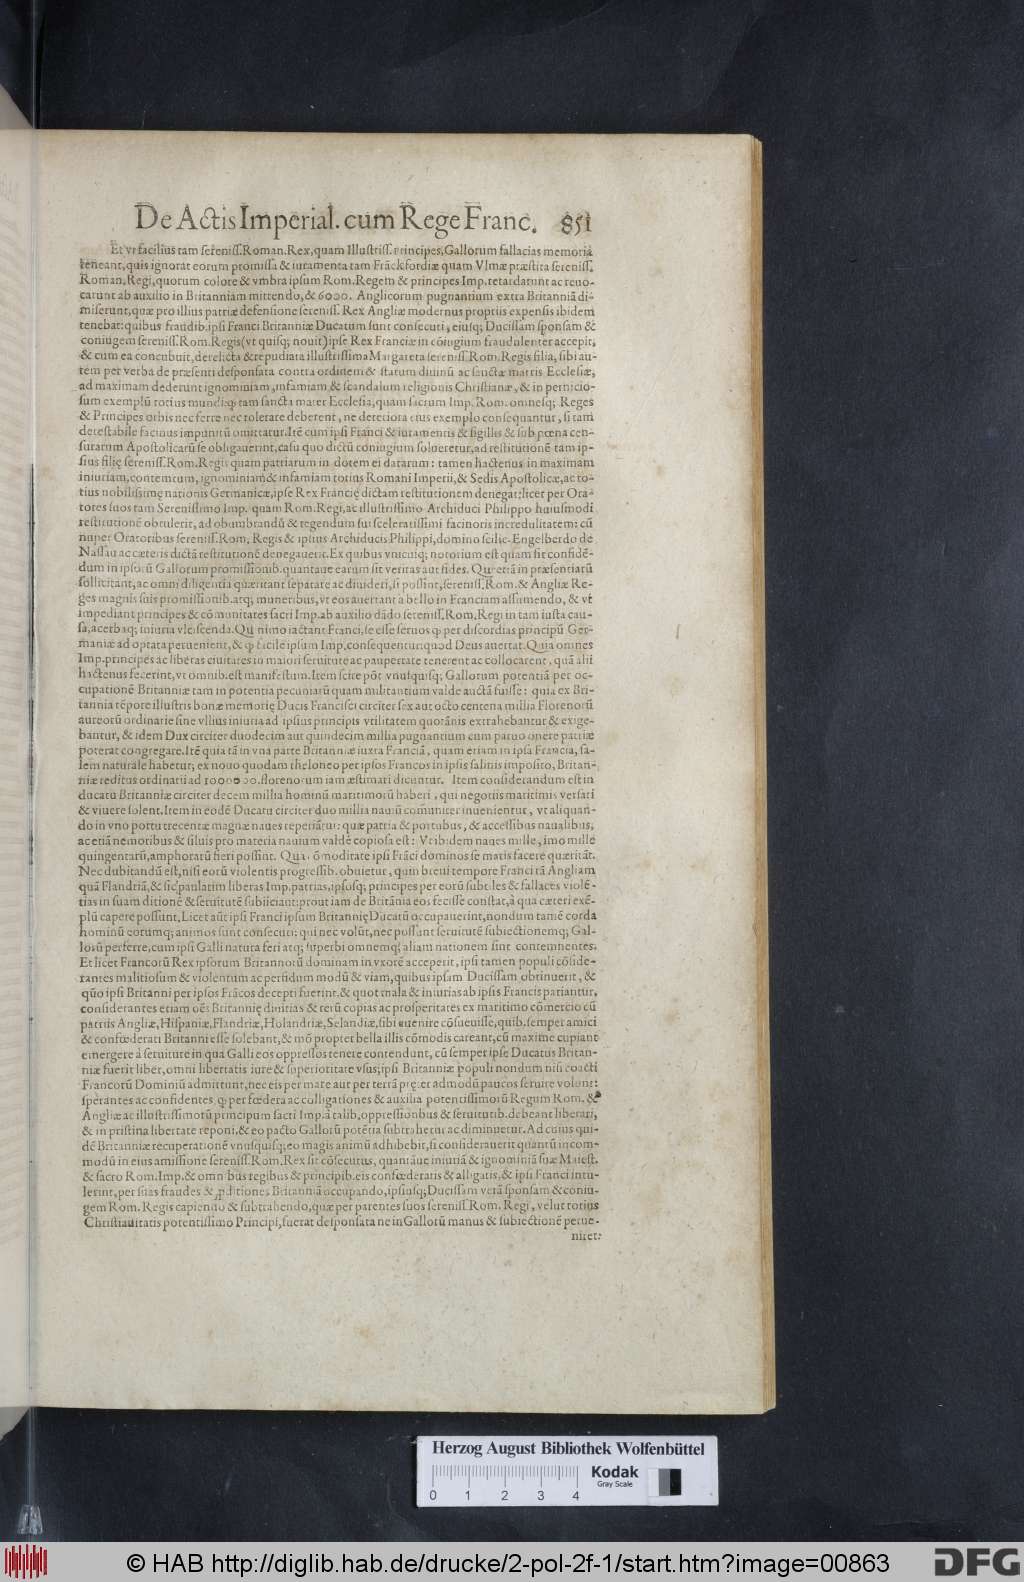 De Actis Imperial. cum Rege Franc. 851
Et vt facilius tam sereniss. Roman. Rex, quam Illustriss. Principes, Gallorum fallacias memoria
teneant, quis ignorat eorum promissa & iuramenta tam Frãckfordiæ quam Vlmæ præstita sereniss.
Roman. Regi, quorum colore & vmbra ipsum Rom. Regem & principes Imp. retardarunt ac reuo-
carunt ab auxilio in Britanniam mittendo, & 6000. Anglicorum pugnantium extra Britanniã di-
miserunt, quæ pro illius patriæ defensione sereniss. Rex Angliæ modernus propriis expensis ibidem
tenebat: quibus fraudib. ipsi Franci Britanniæ Ducatum sunt consecuti, eiusq; Ducissam sponsam &
coniugem sereniss. Rom. Regis (vt quisq; nouit) ipse Rex Franciæ in cõiugium fraudulenter accepit,
& cum ea concubuit, derelicta & repudiata illustrissima Margareta sereniss. Rom. Regis filia, sibi au-
tem per verba de præsenti desponsata contra ordinem & statum diuinũ ac sanctæ matris Ecclesiæ,
ad maximam dederunt ignominiam, infamiam & scandalum religionis Christianæ, & in pernicio-
sum exemplũ totius mundi: tam sancta mater Ecclesia, quam sacrum Imp. Rom. omnesq; Reges
& Principes orbis nec ferre nec tolerare deberent, ne deteriora eius exemplo consequantur, si tam
detestabile facinus impunitũ omittatur. Itẽ cum ipsi Franci & iuramentis & sigillis & sub pœna cen-
surarum Apostolicarũ se obligauerint, casu quo dictũ coniugium solueretur, ad restitutionẽ tam ip-
sius filię sereniss. Rom. Regis quam patriarum in dotem ei datarum: tamen hactenus in maximam
iniuriam, contemtum, ignominiam & infamiam totius Romani Imperii, & Sedis Apostolicæ, ac to-
tius nobilissimę nationis Germanicæ, ipse Rex Francię dictam restitutionem denegat: licet per Ora-
tores suos tam Serenissimo Imp. quam Rom. Regi, ac illustrissimo Archiduci Philippo huiusmodi
restitutionẽ obtulerit, ad obumbrandũ & tegendum sui sceleratissimi facinoris incredulitatem: cũ
nuper Oratoribus sereniss. Rom. Regis & ipsius Archiducis Philippi, domino scilic. Engelberdo de
Nassau ac cæteris dictã restitutionẽ denegauerit. Ex quibus vnicuiq; notorium est quam sit confidẽ-
dum in ipsorũ Gallorum promissionib. quantaue earum sit veritas aut fides. Qui etiã in præsentiarũ
sollicitant, ac omni diligentia quæritant separare ac diuidere, si possint, sereniss. Rom. & Angliæ Re-
ges magnis suis promissionib. atq; muneribus, vt eos auertant à bello in Franciam assumendo, & vt
impediant principes & cõmunitates sacri Imp. ab auxilio dãdo sereniss. Rom. Regi in tam iusta cau-
sa, acerbaq; iniuria vlciscenda. nimo iactant Franci, se esse seruos per discordias principũ Ger-
maniæ ad optata peruenient, & facile ipsum Imp. consequentur: quod Deus auertat. Quia omnes
Imp. principes ac liberas ciuitates in maiori seruitute ac paupertate tenerent ac collocarent, quã alii
hactenus fecerint, vt omnib. est manifestum. Item scire põt vnusquisq; Gallorum potentiã per oc-
cupationẽ Britanniæ tam in potentia pecuniarũ quam militantium valde auctã fuisse: quia ex Bri-
tannia tẽpore illustris bonæ memorię Ducis Francisci circiter sex aut octo centena millia Florenorũ
aureorũ ordinarie sine vllius iniuria ad ipsius principis vtilitatem quotãnis extrahebantur & exige-
bantur, & idem Dux circiter duodecim aut quindecim millia pugnantium cum paruo onere patriæ
poterat congregare. Itẽ quia tã in vna parte Britanniæ iuxta Franciã, quam etiam in ipsa Francia, sa-
lem naturale habetur, ex nouo quodam theloneo per ipsos Francos in ipsis salinis imposito, Britan-
niæ reditus ordinarii ad 1000000. florenorum iam æstimari dicuntur. Item considerandum est in
ducatu Britanniæ circiter decem millia hominũ maritimorũ haberi, qui negotiis maritimis versari
& viuere solent. Item in eodẽ Ducatu circiter duo millia nauiũ cõmuniter inueniuntur, vt aliquan-
do in vno portu trecentæ magnæ naues reperiãtur: quæ patria & portubus, & accessibus naualibus,
ac etiã nemoribus & siluis pro materia nauium valdè copiosa est: Vt ibidem naues mille, imo mille
quingentarũ, amphorarũ fieri possint. Qua cõmoditate ipsi Frãci dominos se maris facere quæritãt.
Nec dubitandũ est, nisi eorũ violentis progressib. obuietur, quin breui tempore Franci tã Angliam
quã Flandriã, & sic paulatim liberas Imp. patrias, ipsosq; principes per eorũ subtiles & fallaces violẽ-
tias in suam ditionẽ & seruitutẽ subiiciant: prout iam de Britãnia eos fecisse constat, à qua cæteri exẽ-
plũ capere possunt. Licet aũt ipsi Franci ipsum Britannię Ducatũ occupauerint, nondum tamẽ corda
hominũ eorumq; animos sunt consecuti: qui nec volũt, nec possunt seruitutẽ subiectionemq; Gal-
lorũ perferre, cum ipsi Galli natura feri atq; superbi omnemq; aliam nationem sint contemnentes.
Et licet Francorũ Rex ipsorum Britannorũ dominam in vxorẽ acceperit, ipsi tamen populi cõside-
rantes malitiosum & violentum ac perfidum modũ & viam, quibus ipsam Ducissam obtinuerit, &
quõ ipsi Britanni per ipsos Frãcos decepti fuerint, & quot mala & iniurias ab ipsis Francis patiantur,
considerantes etiam oẽs Britannię diuitias & rerũ copias ac prosperitates ex maritimo cõmercio cũ
patriis Angliæ, Hispaniæ, Flandriæ, Holandriæ, Selandiæ, sibi euenire cõsueuisse, quib. semper amici
& confœderati Britanni esse solebant, & mõ propter bella illis cõmodis careant, cũ maxime cupiant
emergere à seruitute in qua Galli eos oppressos tenere contendunt, cũ semper ipse Ducatus Britan-
niæ fuerit liber, omni libertatis iure & superioritate vsus, ipsi Britanniæ populi nondum nisi coacti
Francorũ Dominiũ admittunt, nec eis per mare aut per terrã pręter admodũ paucos seruire volunt:
sperantes ac confidentes per fœdera ac colligationes & auxilia potentissimorũ Regum Rom. &
Angliæ ac illustrissimorũ principum sacri Imp. à talib. oppressionbus & seruitutib. debeant liberari,
& in pristina libertate reponi, & eo pacto Gallorũ potẽtia subtrahetur ac diminuetur. Ad cuius qui-
dẽ Britanniæ recuperationẽ vnusquisq; eo magis animũ adhibebit, si considerauerit quantũ incom-
modũ in eius amissione sereniss. Rom. Rex sit cõsecutus, quantãue iniuriã & ignominiã suæ Maiest.
& sacro Rom. Imp. & omnibus regibus & principib. eis confœderatis & alligatis, & ipsi Franci intu-
lerint, per suas fraudes & ꝓditiones Britanniã occupando, ipsiusq; Ducissam verã sponsam & coniu-
gem Rom. Regis capiendo & subtrahendo, quæ per parentes suos sereniss. Rom. Regi, velut totius
Christianitatis potentissimo Principi, fuerat desponsata ne in Gallorũ manus & subiectionẽ perue-
niret:
Herzog August Bibliothek Wolfenbüttel
Kodak
Gray Scale
0 1 2 3 4
© HAB http://diglib.hab.de/drucke/2-pol-2f-1/start.htm?image=00863
DFG